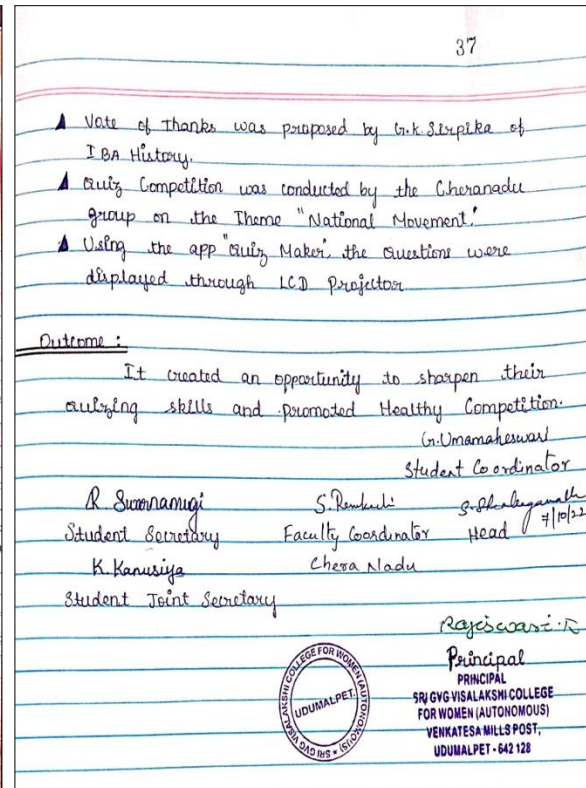 37
Vote of Thanks was proposed by G.K. Sirpika of
I BA History.
Quiz Competition was conducted by the Cheranadu
group on the Theme "National Movement."
Using the app "Quiz Maker", the Questions were
displayed through LCD Projector
Outcome :
It created an opportunity to sharpen their
quizzing skills and promoted Healthy Competition.
G. Umamaheswari
Student Coordinator
R. Swarnamugi S. 7/10/22
Student Secretary Faculty Coordinator Head
K. Kanusiya Chera Nadu
Student Joint Secretary
Rajeswari. K
Principal
PRINCIPAL
SRI GVG VISALAKSHI COLLEGE
FOR WOMEN (AUTONOMOUS)
VENKATESA MILLS POST,
UDUMALPET - 642 128
SRI GVG VISALAKSHI COLLEGE FOR WOMEN (AUTONOMOUS)
UDUMALPET.